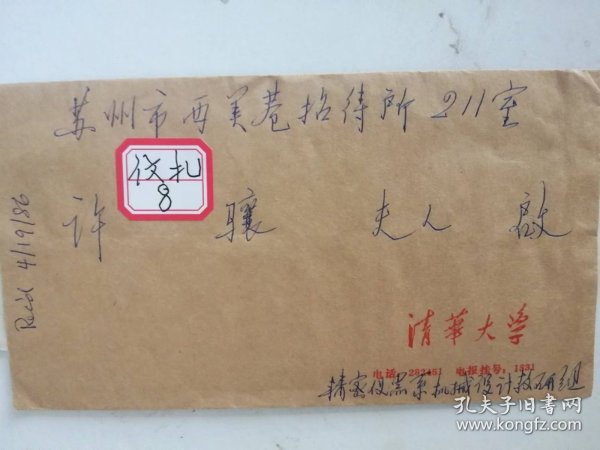 苏州市西美巷招待所211室
仪扎
8
许骧夫人啟
Rec'd 4/19/86
清華大学
电话：282451 电报挂号：1331
精密仪器系机械设计教研组
孔夫子旧书网
www.kongfz.com